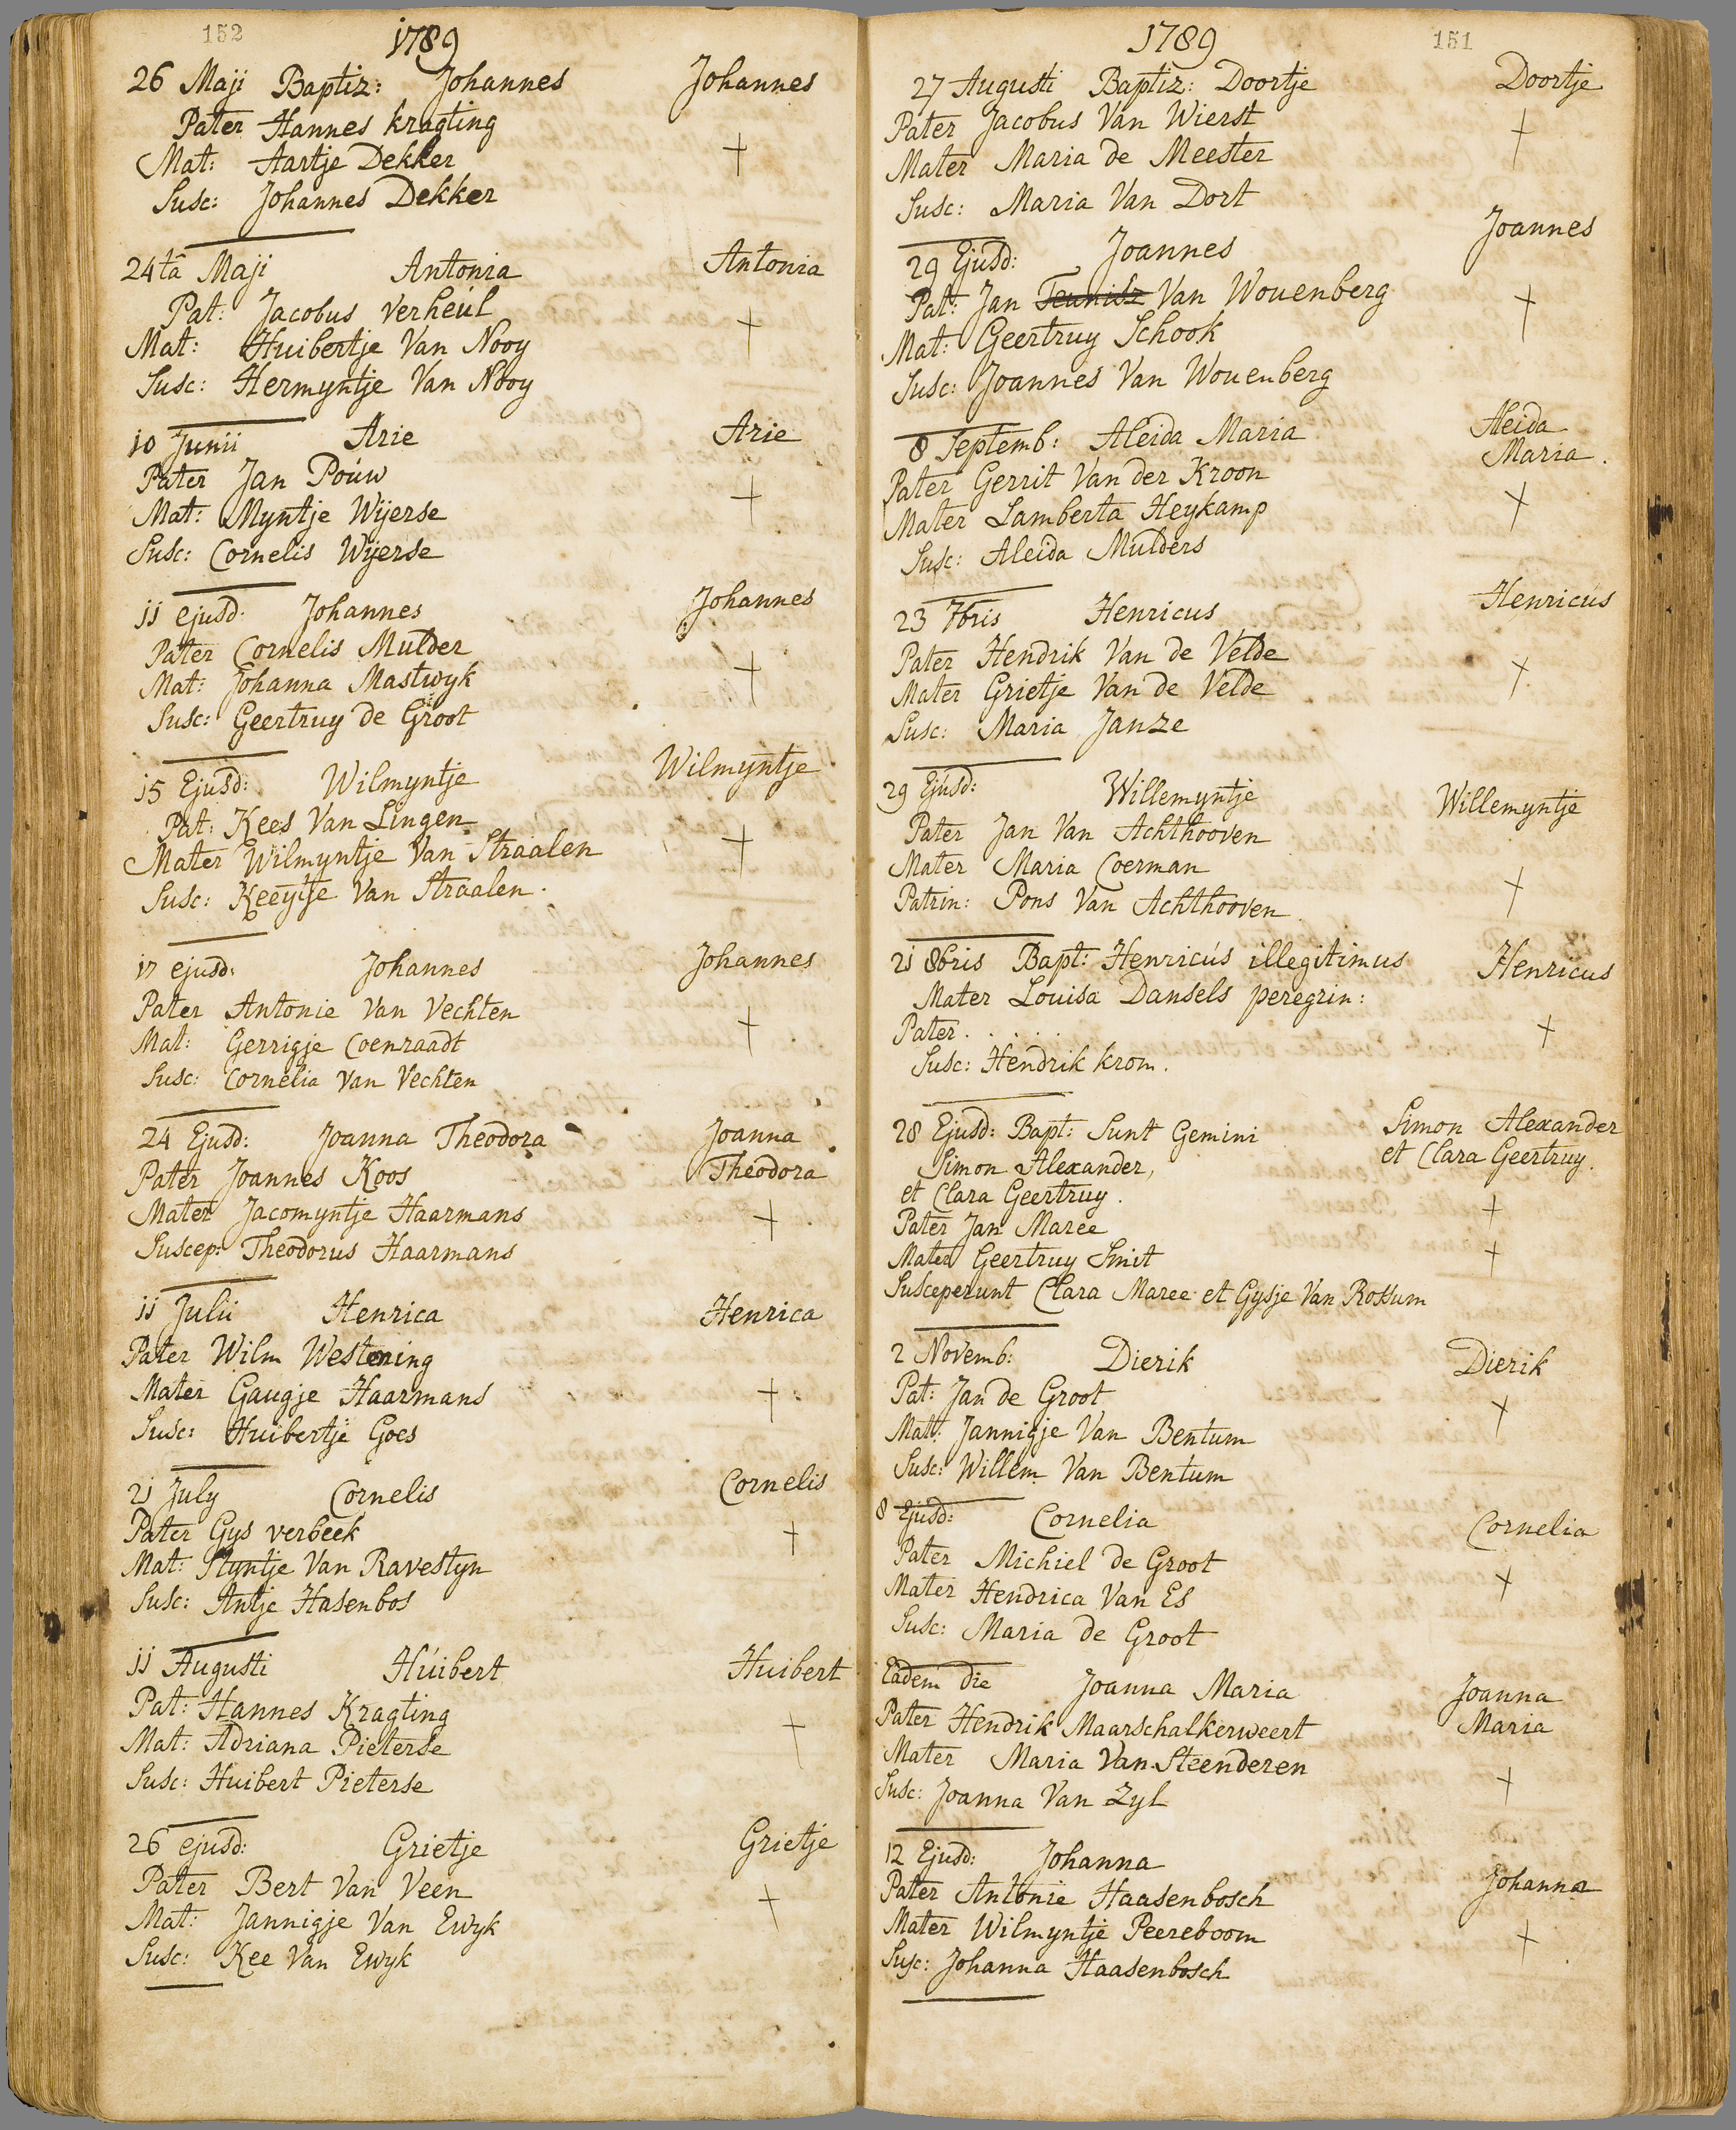 152
1789
26 Maji Baptiz: Johannes Johannes
Pater Hannes kragting
Mat: Aartje Dekker
Susc: Johannes Dekker
24tâ Maji Antonia Antonia
Pat: Jacobus Verheúl
Mat: Huibertje Van Nooy
Susc: Hermyntje Van Nooy
10 Junii Arie Arie
Pater Jan Poúw
Mat: Myntje Wijerse
Susc: Cornelis Wijerse
11 ejusd: Johannes Johannes
Pater Cornelis Mulder
Mat: Johanna Mastwyk
Susc: Geertruy de Groot
15 Ejusd: Wilmyntje Wilmyntje
Pat: Kees Van Lingen
Mater Wilmyntje Van Straalen
Susc: Keeytje Van Straalen.
17 ejusd: Johannes Johannes
Pater Antonie Van Vechten
Mat: Gerrigje Coenraadt
Susc: Cornelia Van Vechten
24 Ejusd: Joanna Theodora Joanna Theodora
Pater Joannes Koos
Mater Jacomyntje Haarmans
Suscep: Theodorus Haarmans
11 Julii Henrica Henrica
Pater Wilm Westening
Mater Gaugje Haarmans
Susc: Huibertje Goes
21 July Cornelis Cornelis
Pater Gys verbeek
Mat: Styntje Van Ravestyn
Susc: Antje Hasenbos
11 Augusti Húibert Huibert
Pat: Hannes Kragting
Mat: Adriana Pieterse
Susc: Huibert Pieterse
26 ejusd: Grietje Grietje
Pater Bert Van Veen
Mat: Jannigje Van Ewyk
Susc: Kee Van Ewyk
1789
151
27 Augusti Baptiz: Doortje Doortje
Pater Jacobus Van Wierst
Mater Maria de Meester
Susc: Maria Van Dort
29 Ejusd: Joannes Joannes
Pat: Jan Teunisz Van Wouenberg
Mat: Geertruy Schook
Susc: Joannes Van Wouenberg
8 Septemb: Aleida Maria Aleida Maria.
Pater Gerrit Van der Kroon
Mater Lamberta Heykamp
Susc: Aleida Mulders
23 7bris Henricus Henricús
Pater Hendrik Van de Velde
Mater Grietje Van de Velde
Susc: Maria Janze
29 Ejusd: Willemyntje Willemyntje
Pater Jan Van Achthooven
Mater Maria Coerman
Patrin: Pons Van Achthooven.
21 8bris Bapt: Henricús illegitimus Henricus
Mater Louisa Dansels peregrin:
Pater. . . . .
Susc: Hendrik krom.
28 Ejusd: Bapt: Sunt Gemini Simon Alexander
Simon Alexander, et Clara Geertruy.
et Clara Geertruy.
Pater Jan Maree
Mater Geertruy Smit
Susceperunt Clara Maree et Gysje Van Rossum
2 Novemb: Dierik Dierik
Pat: Jan de Groot
Mat: Jannigje Van Bentum
Susc: Willem Van Bentum
8 Ejusd: Cornelia Cornelia
Pater Michiel de Groot
Mater Hendrica Van Es
Susc: Maria de Groot
Eadem die Joanna Maria Joanna Maria
Pater Hendrik Maarschalkerweert
Mater Maria Van Steenderen
Susc: Joanna Van Zyl
12 Ejusd: Johanna Johanna
Pater Antonie Haasenbosch
Mater Wilmyntje Peereboom
Susc: Johanna Haasenbosch